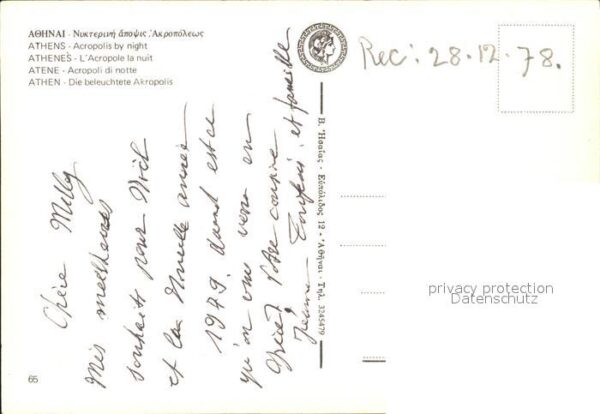 ΑΘΗΝΑΙ - Νυκτερινὴ ἄποψις Ἀκροπόλεως
ATHENS - Acropolis by night
ATHENES - L'Acropole la nuit
ATENE - Acropoli di notte
ATHEN - Die beleuchtete Akropolis
Rec: 28.12.78.
Chère Milly
Mes meilheures
souhaits pour Noël
et la Nouvelle année
1979. quand est ce
qu'on vous verra en
Grèce? Votre cousine
Jeanne et famille
Β. Ἠσαΐας - Εὐπόλιδος 12 - Ἀθῆναι - Τηλ. 3245479
65
privacy protection
Datenschutz